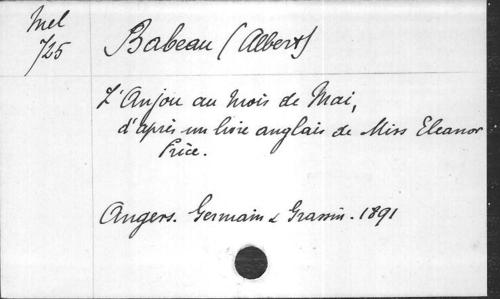 Mel
725
Babeau (Albert)
L'Anjou au Mois de Mai,
d'après un livre anglais de Miss Eleanor
Price.
Angers. Germain & Grassin. 1891